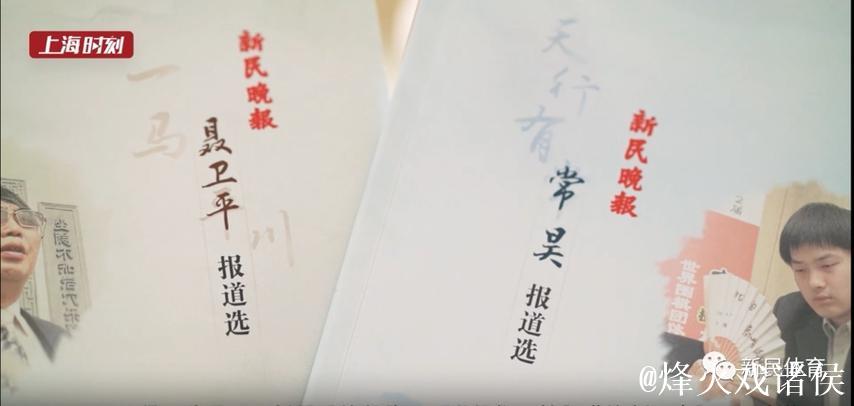 上海时刻
新民晚报
一马
聂卫平
川
报道选
新民晚报
天行有
常昊
报道选
世界围棋团
新民体育
@烽火戏诸侯